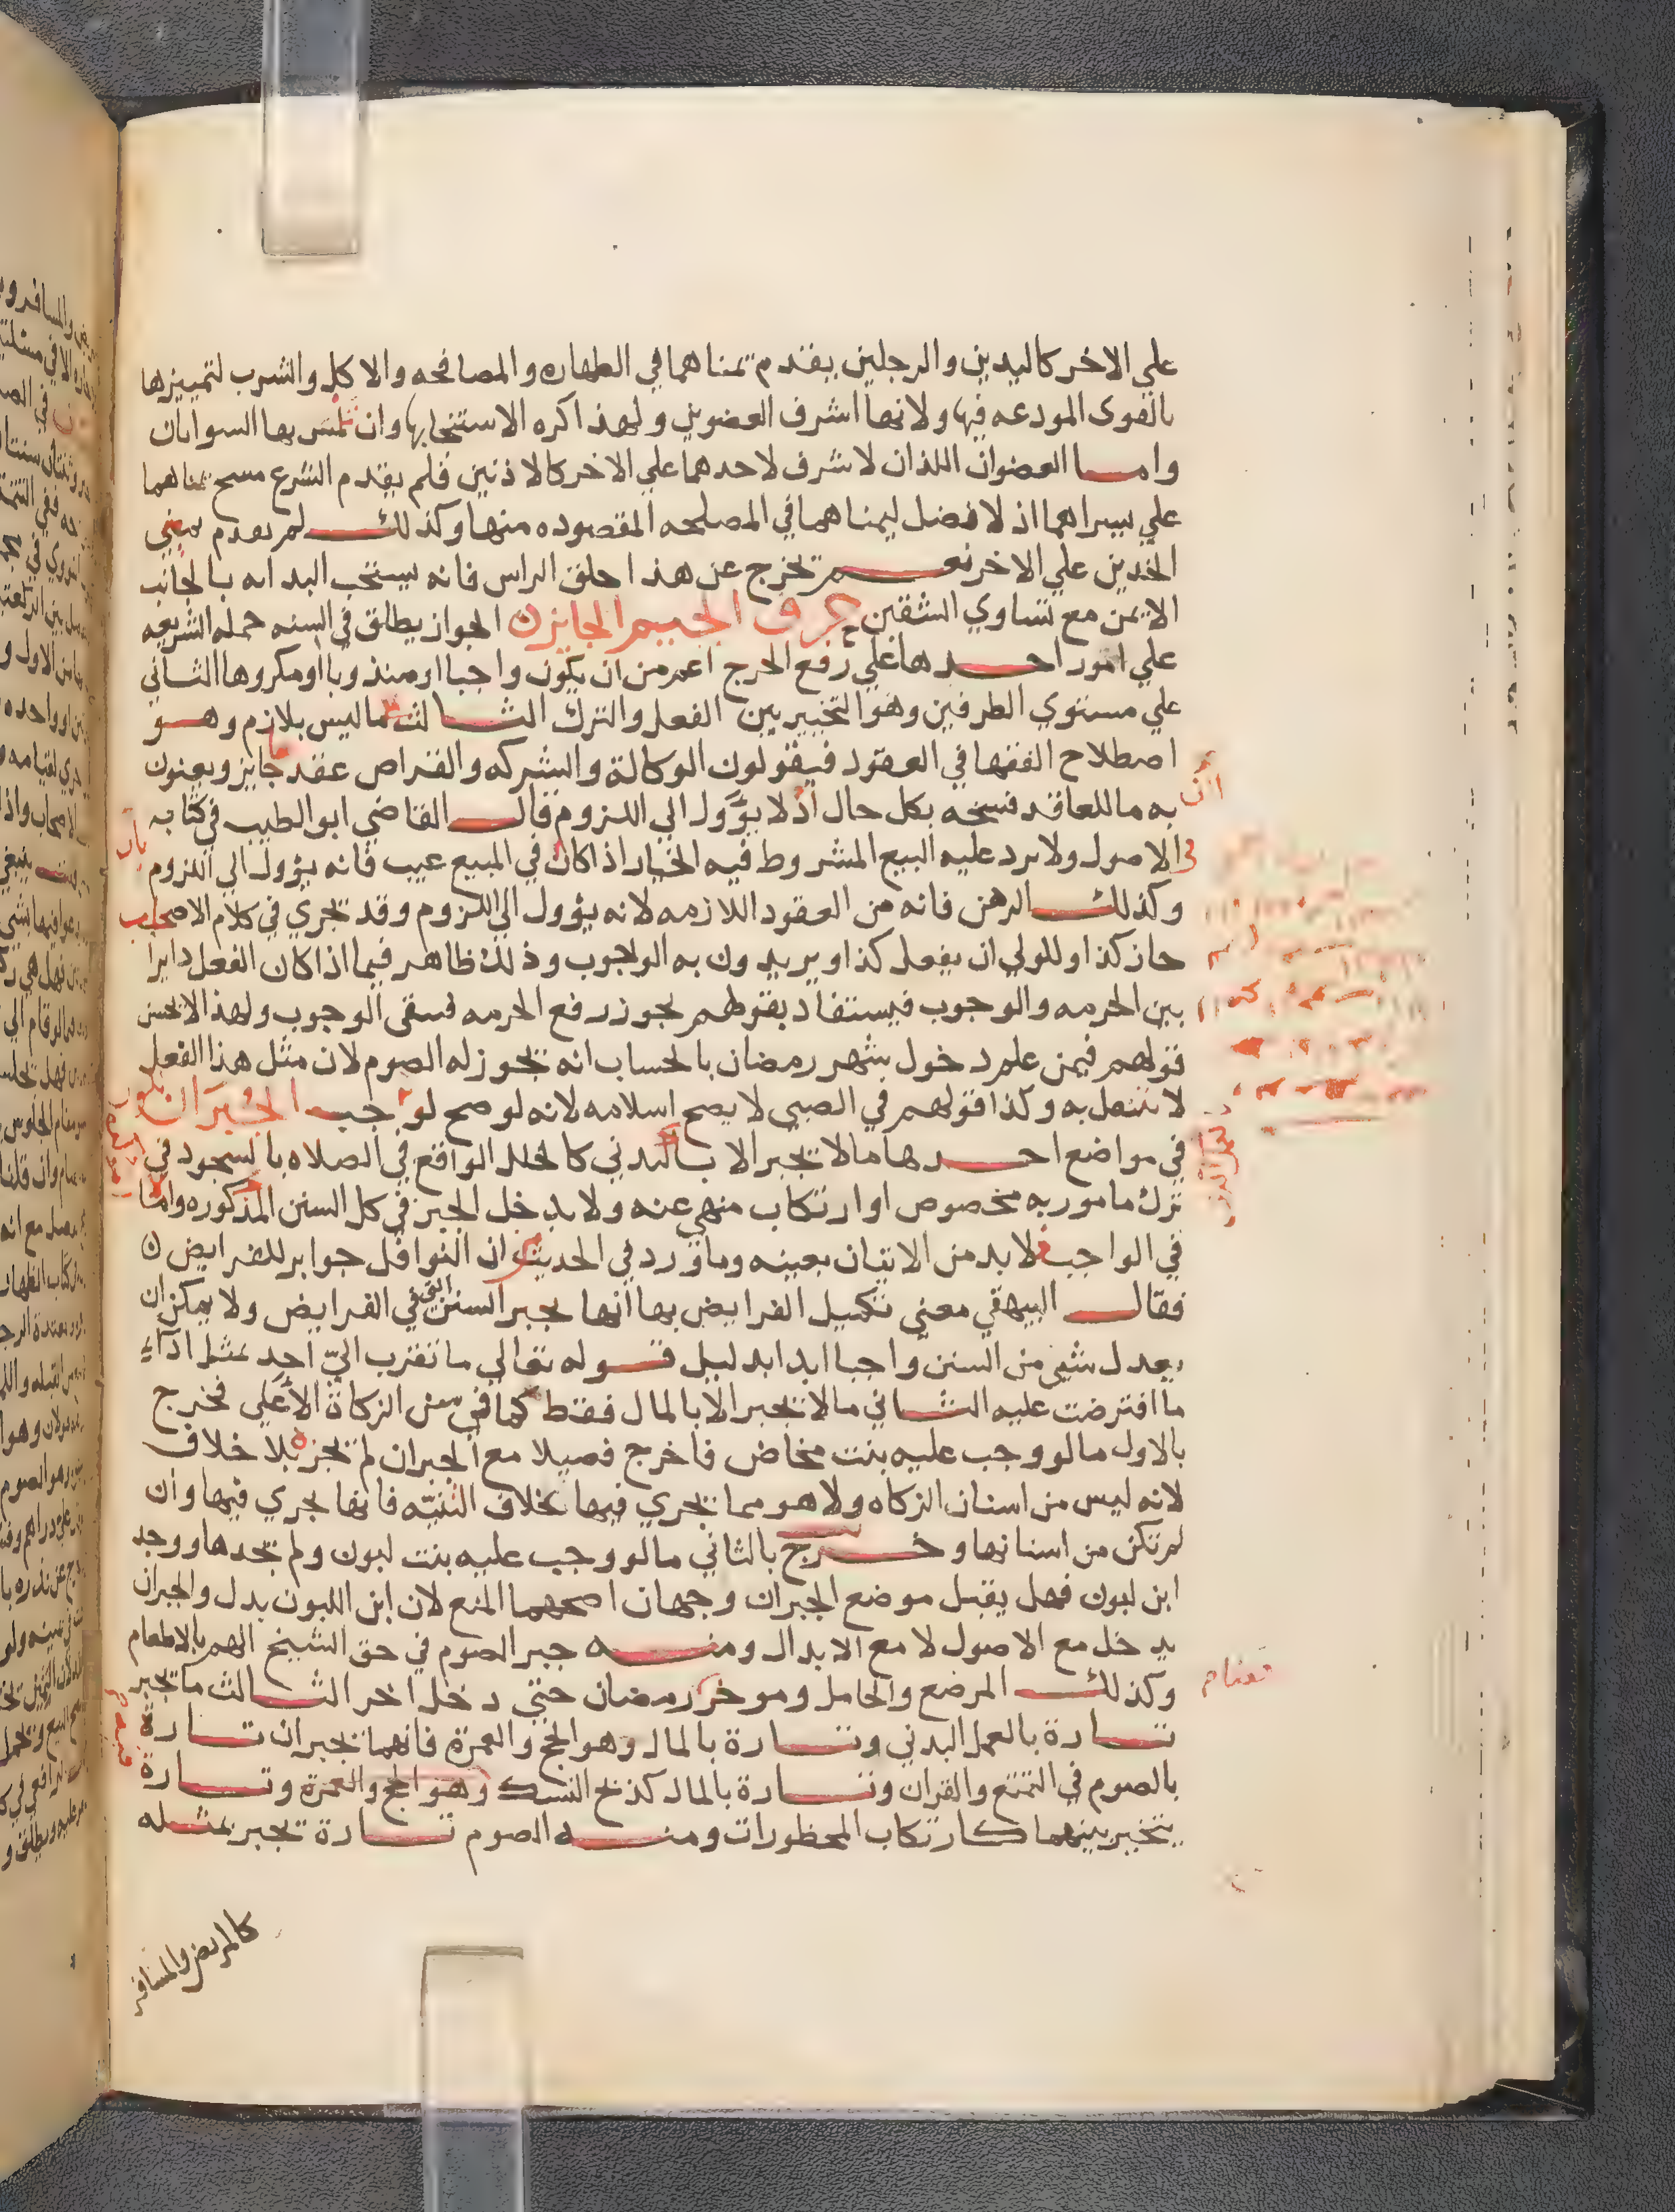 علي الاخر كاليدين والرجلين يقدم يمناهما في الطهاره والمصافحه والاكل والشرب لتمييزها
بالقوى المودعه فيها ولانها اشرف العضوين ولهذا كره الاستنجا بها وان تلمس بها السواتان
وامـا العضوان اللذان لا شرف لاحدهما علي الاخر كالاذنين فلم يقدم الشرع مسح يمناهما
علي يسراهما اذ لا فضل ليمناهما في المصلحه المقصوده منها وكذلك لم يقدم يمني
الخدين علي الاخر نعـم تخرج عن هذا حلق الراس فانه يستحب البداه بالجانب
الايمن مع تساوي الشقين حرف الجيم الجايز ن الجواز يطلق في السنه حمله الشريعه
علي امور احـدها علي رفع الحرج اعم من ان يكون واجبا او مندوبا او مكروها الثاني
علي مستوي الطرفين وهو التخيير بين الفعل والترك الثـالث ما ليس بلازم وهـو
اصطلاح الفقها في العقود فيقولون الوكالة والشركه والقراض عقد جايز ويعنون
به ما للعاقد فسخه بكل حال اذ لا يؤول الي اللزوم قال القاضي ابو الطيب في كتابه
في الاصول ولا يرد عليه البيع المشروط فيه الخيار اذا كان في المبيع عيب فانه يؤول الي اللزوم
وكذلك الرهن فانه من العقود اللازمه لانه يؤول الي اللزوم وقد تجري في كلام الاصحاب
جاز كذا وللولي ان يفعل كذا ويريدون به الوجوب وذلك ظاهر فيما اذا كان الفعل دايرا
بين الحرمه والوجوب فيستفاد بقولهم يجوز رفع الحرمه فيبقى الوجوب ولهذا لا يحسن
قولهم فيمن علم دخول شهر رمضان بالحساب انه يجوز له الصوم لان مثل هذا الفعل
لا يتنفل به وكذا قولهم في الصبي لا يصح اسلامه لانه لو صح لوجب الجُبرَان يكون
في مواضع احـدها ما لا يجبر الا بالبدني كالخلل الواقع في الصلاه بالسجود في
ترك مامور به مخصوص او ارتكاب منهي عنه ولا يدخل الجبر في كل السنن المذكوره واما
في الواجب فلا بد من الاتيان بعينه وما ورد في الحديث من ان النوافل جوابر للفرايض ن
فقال البيهقي معني تكميل الفرايض بها انها تجبر السنن التي في الفرايض ولا يمكن ان
يعدل شي من السنن واجبا ابدا بدليل قـوله تعالي ما تقرب اليّ احد بمثل اداء
ما افترضت عليه الثـاني ما لا يجبر الا بالمال فقط كما في سن الزكاة الاعلى فخرج
بالاول ما لو وجب عليه بنت مخاض فاخرج فصيلا مع الجبران لم يجزه بلا خلاف
لانه ليس من اسنان الزكاه ولا هو مما يجري فيها بخلاف الثنيّه فانها تجري فيها وان
لم تكن من اسنانها وخـرج بالثاني ما لو وجب عليه بنت لبون ولم يجدها ووجد
ابن لبون فهل يقبل موضع الجبران وجهان اصحهما المنع لان ابن اللبون بدل والجبران
يدخل مع الاصول لا مع الابدال ومنـه جبر الصوم في حق الشيخ الهم بالاطعام
وكذلك المرضع والحامل وموخر رمضان حتي دخل اخر الثـالث ما يجبر
تـارة بالعمل البدني وتـارة بالمال وهو الحج والعمرة فانهما يجبران تـارة
بالصوم في التمتع والقران وتـارة بالمال كذبح النسك وهو الحج والعمرة وتـارة
يتخير بينهما كارتكاب المحظورات ومنـه الصوم تـارة يجبر بمثله
كالمريض والمسافر